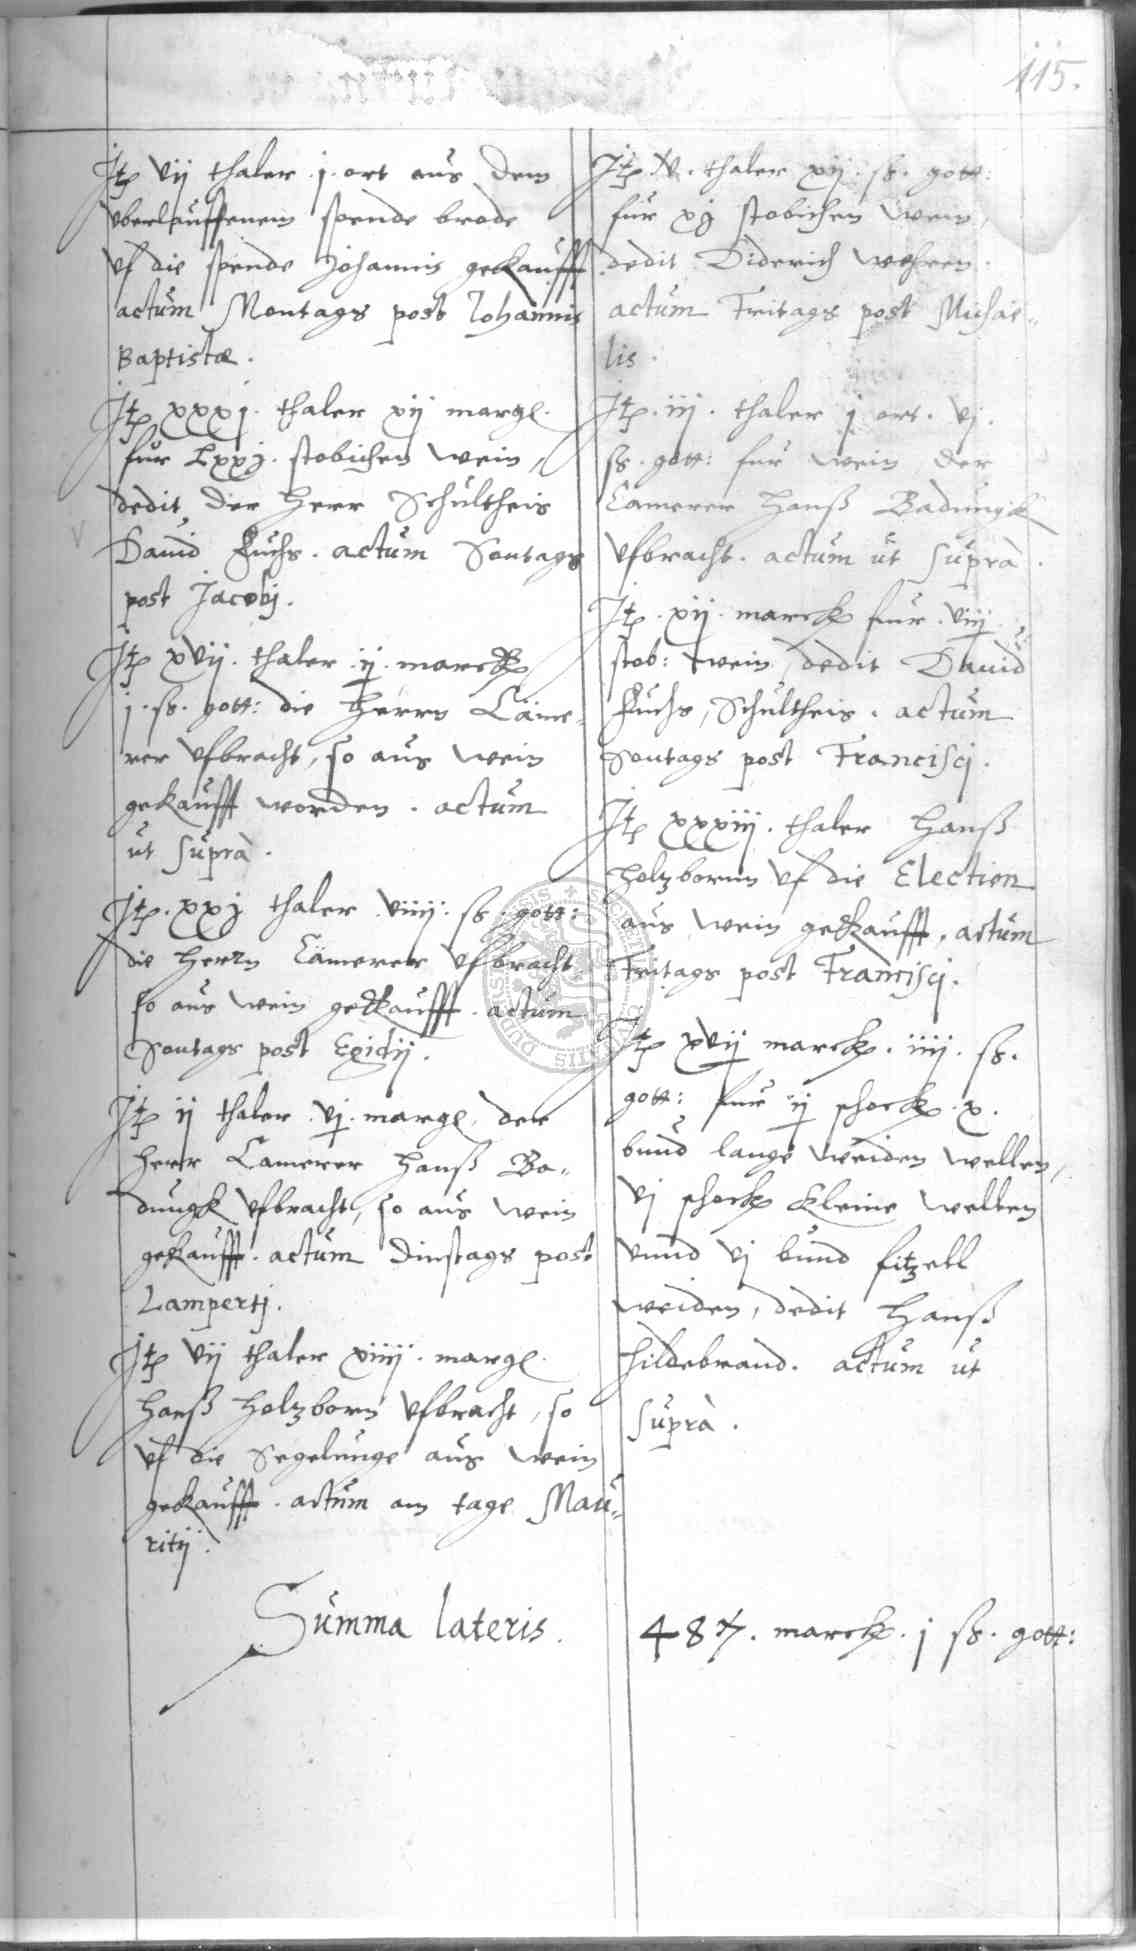 115.
Itp vij thaler j. ort aus dem
vberlauffenem spende brode
vf die spende Johannis gekaufft
actum Montags post Johannis
Baptistæ.
Itp xxxj. thaler xij margl.
fur Lxxj. stobichen wein,
dedit der Herr Schultheis
David Fuchs. actum Sontags
post Jacobj.
Itp xvij. thaler .ij. marck
j. ß. gott: die Herrn Cäme-
rer vfbracht, so aus wein
gekaufft worden. actum
ut suprà.
Itp. xxj thaler viiij. ß. gott:
die Herrn Cämerer vfbracht
so aus wein gekaufft. actum
Sontags post Egidij.
Itp ij thaler vj. margl. der
Herr Camerer Hanß Ba-
dungk vfbracht, so aus wein
gekaufft. actum Dinstags post
Lampertj.
Itp vij thaler xiiij. margl.
Hanß Holzborn vfbracht, so
vf die Segelunge aus wein
gekaufft. actum am tage Mau-
ritij.
Itp .v. thaler xij. ß. gott:
fur xj stobichen wein,
dedit Diderich wehren.
actum Fritags post Michäe-
lis.
Itp. iij. thaler j ort. vj.
ß. gott: fur wein der
Camerer Hanß Badungk
vfbracht. actum ut suprà.
Itp. xij. marck fur viij.
stob: wein, dedit David
Fuchs, Schultheis. actum
Sontags post Francisci.
Itp xxxiij. thaler Hanß
Holzbornn vf die Election
aus wein gekaufft. actum
Fritags post Francisci.
Itp xvij marck. iiij. ß.
gott: fur ij schock. x.
bund lange weiden wellen,
vj schock kleine wellen
vnnd vj bund fitzell
weiden, dedit Hanß
Hildebrand. actum ut
suprà.
Summa lateris. 487. marck. j ß. gott: